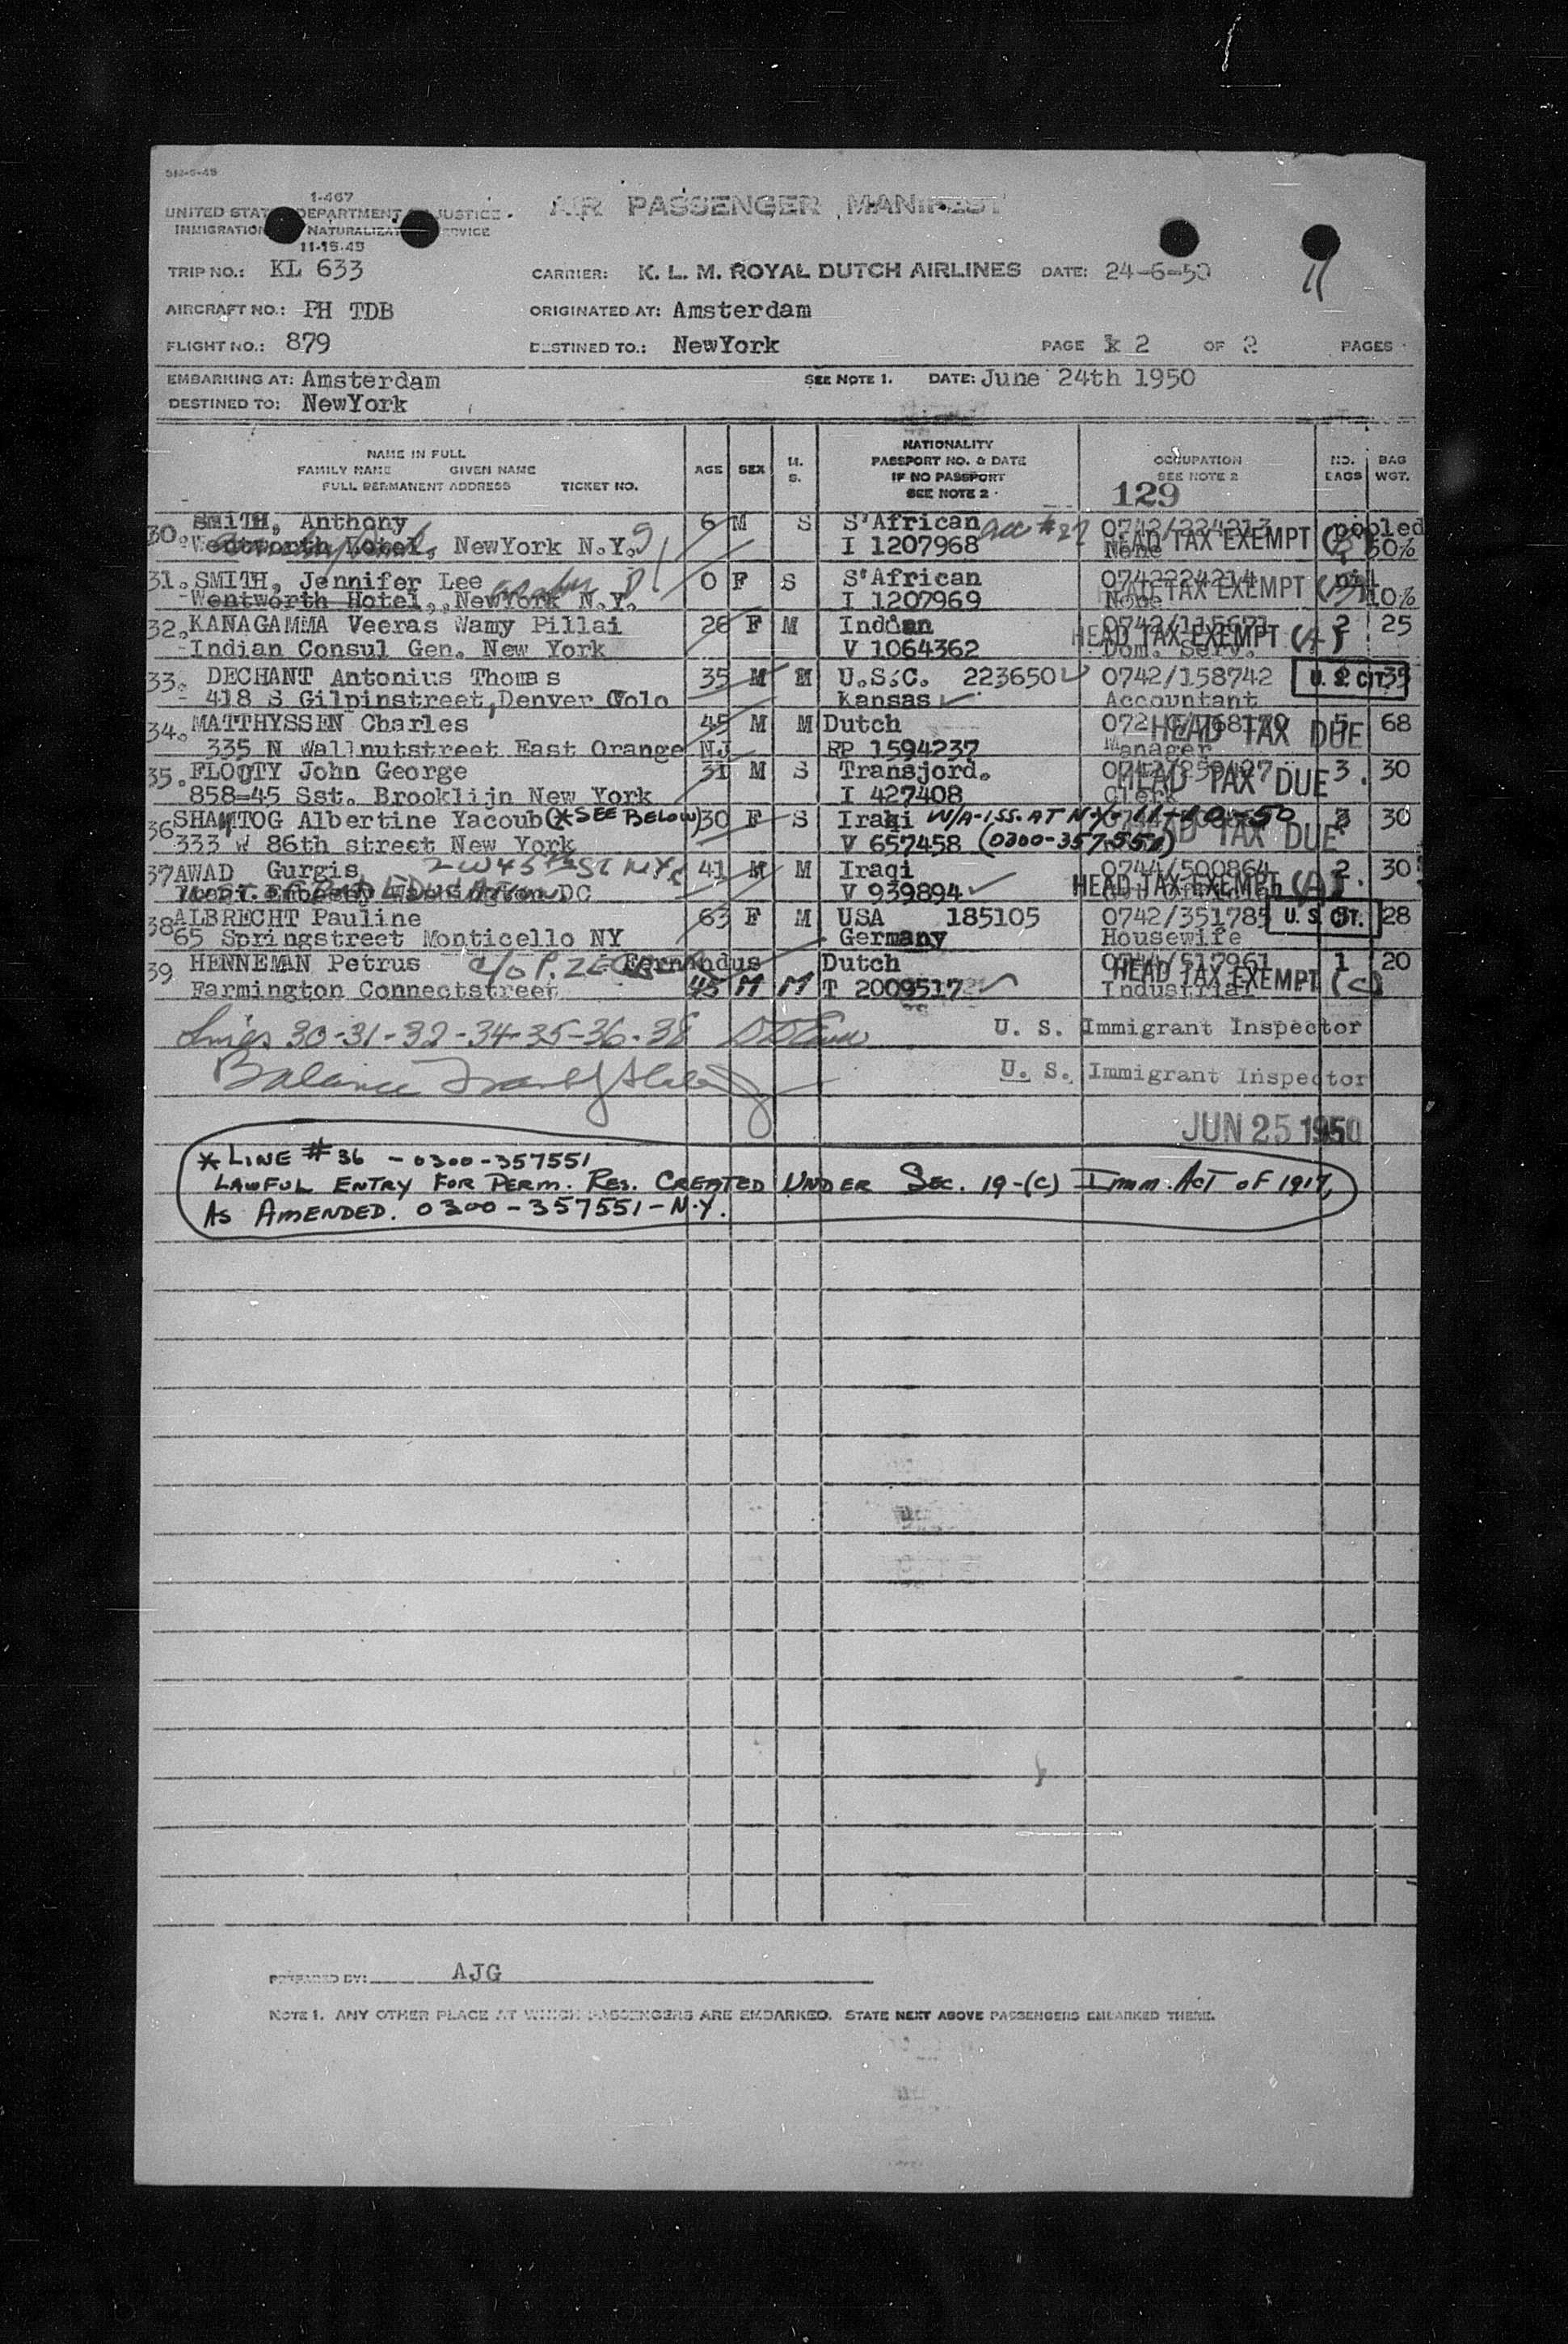 1-467
UNITED STATES DEPARTMENT JUSTICE
IMMIGRATION NATURALIZATION SERVICE
11-15-49
AIR PASSENGER MANIFEST
TRIP NO.: KL 633 CARRIER: K. L. M. ROYAL DUTCH AIRLINES DATE: 24-6-50
AIRCRAFT NO.: PH TDB ORIGINATED AT: Amsterdam
FLIGHT NO.: 879 DESTINED TO.: NewYork PAGE 2 OF 2 PAGES
EMBARKING AT: Amsterdam SEE NOTE 1. DATE: June 24th 1950
DESTINED TO: NewYork
NAME IN FULL
FAMILY NAME GIVEN NAME
FULL PERMANENT ADDRESS TICKET NO.
AGE SEX M. S.
NATIONALITY
PASSPORT NO. & DATE
IF NO PASSPORT
SEE NOTE 2
OCCUPATION
SEE NOTE 2
NO. BAGS BAG WGT.
129
30. SMITH, Anthony 6 M S S'African 0742/224213 pooled
Wentworth Hotel, NewYork N.Y. I 1207968 None HEAD TAX EXEMPT 50%
31. SMITH, Jennifer Lee 0 F S S'African 0742224214 nil
Wentworth Hotel, NewYork N.Y. I 1207969 None HEAD TAX EXEMPT 10%
32. KANAGAMMA Veeras Wamy Pillai 26 F M Indian 2 25
Indian Consul Gen. New York V 1064362 Dom. Serv. HEAD TAX EXEMPT (A)
33. DECHANT Antonius Thomas 35 M M U.S.C. 223650 0742/158742 U.S. CIT. 35
418 S Gilpinstreet, Denver Colo Kansas Accountant
34. MATTHYSSEN Charles 45 M M Dutch HEAD TAX DUE 68
335 N Wallnutstreet East Orange NJ RP 1594237 Manager
35. FLOUTY John George 31 M S Transjord. 3. 30
858-45 Sst. Brooklijn New York I 427408 Clerk HEAD TAX DUE
36 SHAMTOG Albertine Yacoub (* SEE BELOW) 30 F S Iraqi W/A-ISS. AT N.Y. 30
333 W 86th street New York V 657458 (0300-357551) HEAD TAX DUE
37 AWAD Gurgis 2 W 45th ST NYC 41 M M Iraqi 0744/500864 2. 30
DC V 939894 HEAD TAX EXEMPT (A)
38 ALBRECHT Pauline 63 F M USA 185105 0742/351785 U. S. CIT. 28
65 Springstreet Monticello NY Germany Housewife
39 HENNEMAN Petrus Fernandus Dutch 0744/517961 1 20
Farmington Connectstreet 45 M M T 2009517 Industrial HEAD TAX EXEMPT (C)
Lines 30-31-32-34-35-36-38 U. S. Immigrant Inspector
Balance U. S. Immigrant Inspector
JUN 25 1950
* LINE # 36 - 0300-357551
LAWFUL ENTRY FOR PERM. RES. CREATED UNDER SEC. 19-(C) IMM. ACT OF 1917,
AS AMENDED. 0300-357551-N.Y.
PREPARED BY: AJG
NOTE 1. ANY OTHER PLACE AT WHICH PASSENGERS ARE EMBARKED. STATE NEXT ABOVE PASSENGERS EMBARKED THERE.